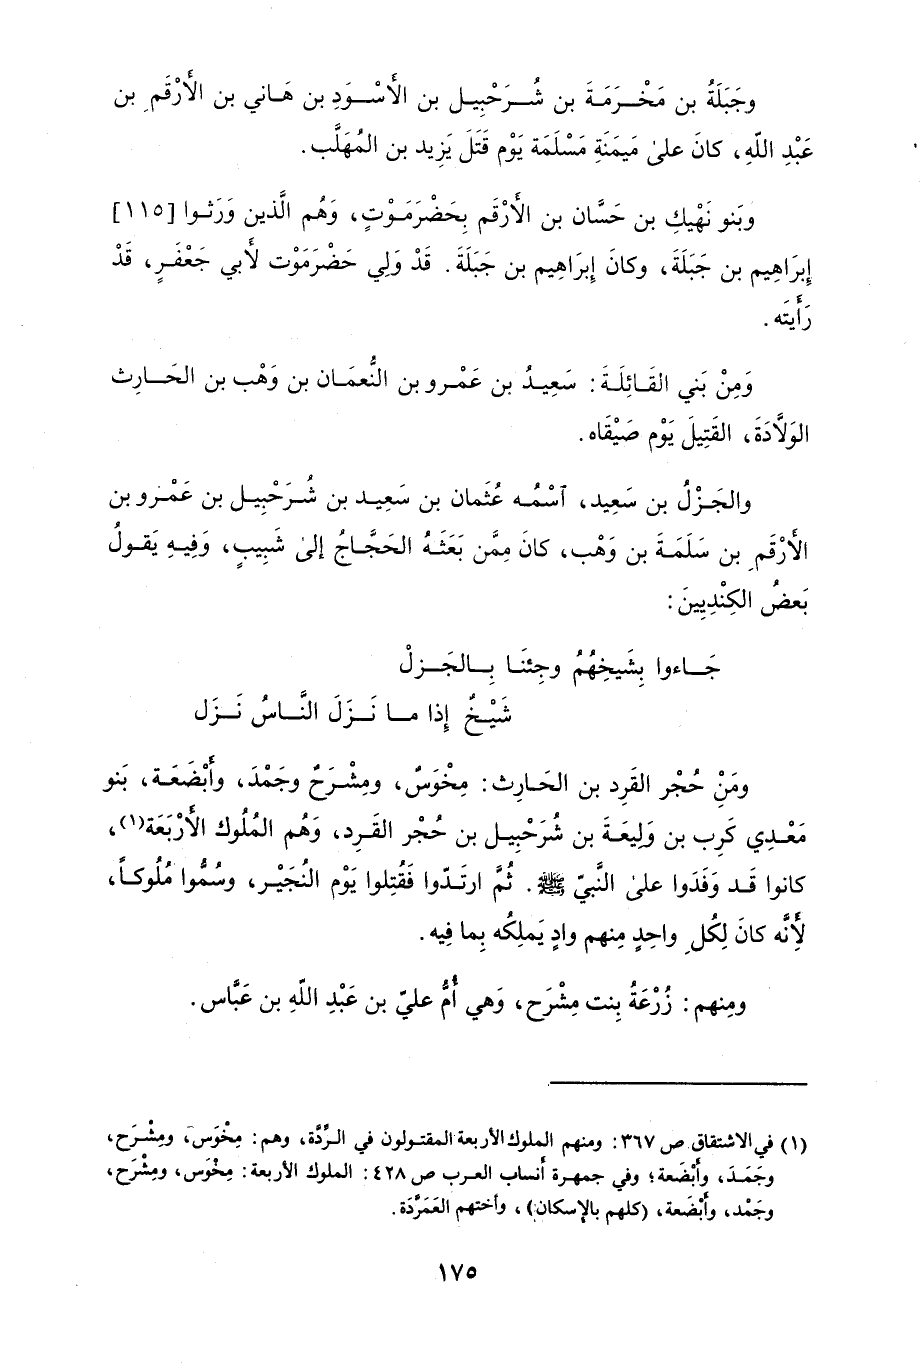 وجَبَلَةُ بن مَخْـرَمَـةَ بن شُـرَحْبِيـل بن الأَسْـوَدِ بن هَـاني بن الأَرْقَم بن
عَبْدِ اللّهِ، كانَ علىٰ مَيمَنَةِ مَسْلَمَة يَوْم قَتَلَ يَزِيد بن المُهَلَّب.
وبَنو نَهْيكِ بن حَسَّان بن الأَرْقَم بِحَضْرَمَـوْتٍ، وَهُم الَّذين وَرَثـوا [١١٥]
إِبرَاهِيم بن جَبَلَةَ، وكانَ إِبرَاهِيم بن جَبَلَةَ. قَدْ وَلِي حَضْرَمَوْت لأَبي جَعْفَـرٍ، قَدْ
رَأَيتَه.
وَمِنْ بَني القَـائِلَـةَ: سَعِيـدُ بن عَمْـرو بن النُّعمَـان بن وَهْب بن الحَـارِث
الوَلاَّدَةَ، القَتِيلَ يَوْم صَيْقَاه.
والجَـزْلُ بن سَعِيد، ٱسْمُـه عُثمَان بن سَعِيـد بن شُـرَحْبِيـل بن عَمْـرو بن
الأَرْقَم بن سَلَمَـةَ بن وَهْب، كانَ مِمَّن بَعَثَـهُ الحَجَّاجُ إِلىٰ شَبِيبٍ، وَفِيـهِ يَقـولُ
بَعضُ الكِنْدِيينَ:
جَـاءوا بِشَيخِهُمُ وجِئنَـا بِـالجَـزلْ
شَيْـخٌ إِذا مـا نَـزَلَ النَّـاسُ نَـزَل
ومَنْ حُجْر القَرِد بن الحَـارِث: مِخْوَسٌ، ومِشْـرَحٌ وجَمْدَ، وأَبْضَعَـة، بَنو
مَعْـدِي كَرِب بن وَلِيعَةَ بن شُرَحْبِيـل بن حُجْر القَـرِد، وَهُم المُلوك الأَرْبَعَة(١)،
كانوا قَـد وَفَدَوا علىٰ النَّبيّ ﷺ. ثُمَّ ارتَـدّوا فَقُتِلوا يَوْم النُجَيْـر، وسُمُّوا مُلُوكـاً،
لأَنَّه كانَ لِكُل واحِدٍ مِنهم وادٍ يَملِكُه بِما فِيه.
ومِنهم: زُرْعَةُ بِنت مِشْرَح، وَهي أُمُّ عليّ بن عَبْدِ اللّهِ بن عَبَّاس.
(١) في الاشتقاق ص ٣٦٧: ومنهم الملوك الأربعة المقتـولون في الـرِّدَّة، وهم: مِخْوَسَ، ومِشْـرَح،
وجَمَـدَ، وأَبْضَعة؛ وفي جمهرة أنساب العرب ص ٤٢٨: الملوك الأربعة: مِخْوَس، ومِشْرَح،
وجَمْد، وأَبْضَعة، (كلهم بالإسكان)، وأختهم العَمَرَّدَة.
١٧٥